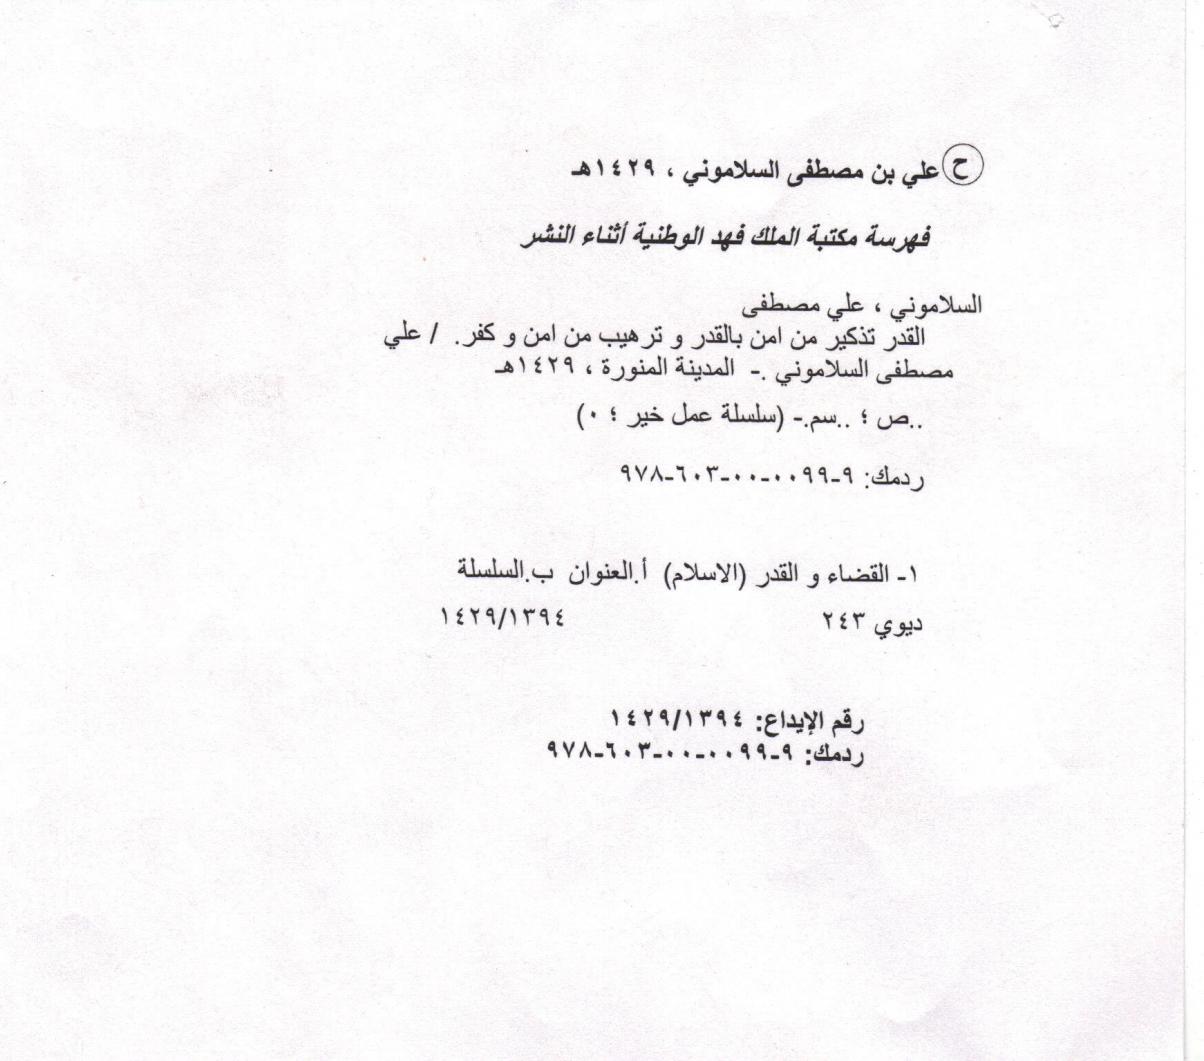 ح علي بن مصطفى السلاموني ، ١٤٢٩هـ
فهرسة مكتبة الملك فهد الوطنية أثناء النشر
السلاموني ، علي مصطفى
القدر تذكير من امن بالقدر و ترهيب من امن و كفر. / علي
مصطفى السلاموني .- المدينة المنورة ، ١٤٢٩هـ
..ص ؛ ..سم.- (سلسلة عمل خير ؛ ٠)
ردمك: ٩-٠٠٩٩-٠٠-٦٠٣-٩٧٨
١- القضاء و القدر (الاسلام) أ.العنوان ب.السلسلة
ديوي ٢٤٣ ١٤٢٩/١٣٩٤
رقم الإيداع: ١٤٢٩/١٣٩٤
ردمك: ٩-٠٠٩٩-٠٠-٦٠٣-٩٧٨